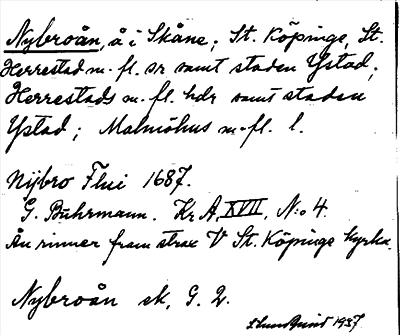 Nybroån, å i Skåne; St. Köpinge, St.
Herrestad m. fl. snr samt staden Ystad;
Herrestads m. fl. hdr samt staden
Ystad; Malmöhus m. fl. l.
Nijbro Flui 1687.
G. Buhrmann. Kr A, XVII, N:o 4.
Ån rinner fram strax V St. Köpinge kyrka.
Nybroån ek, G. 2.
1937